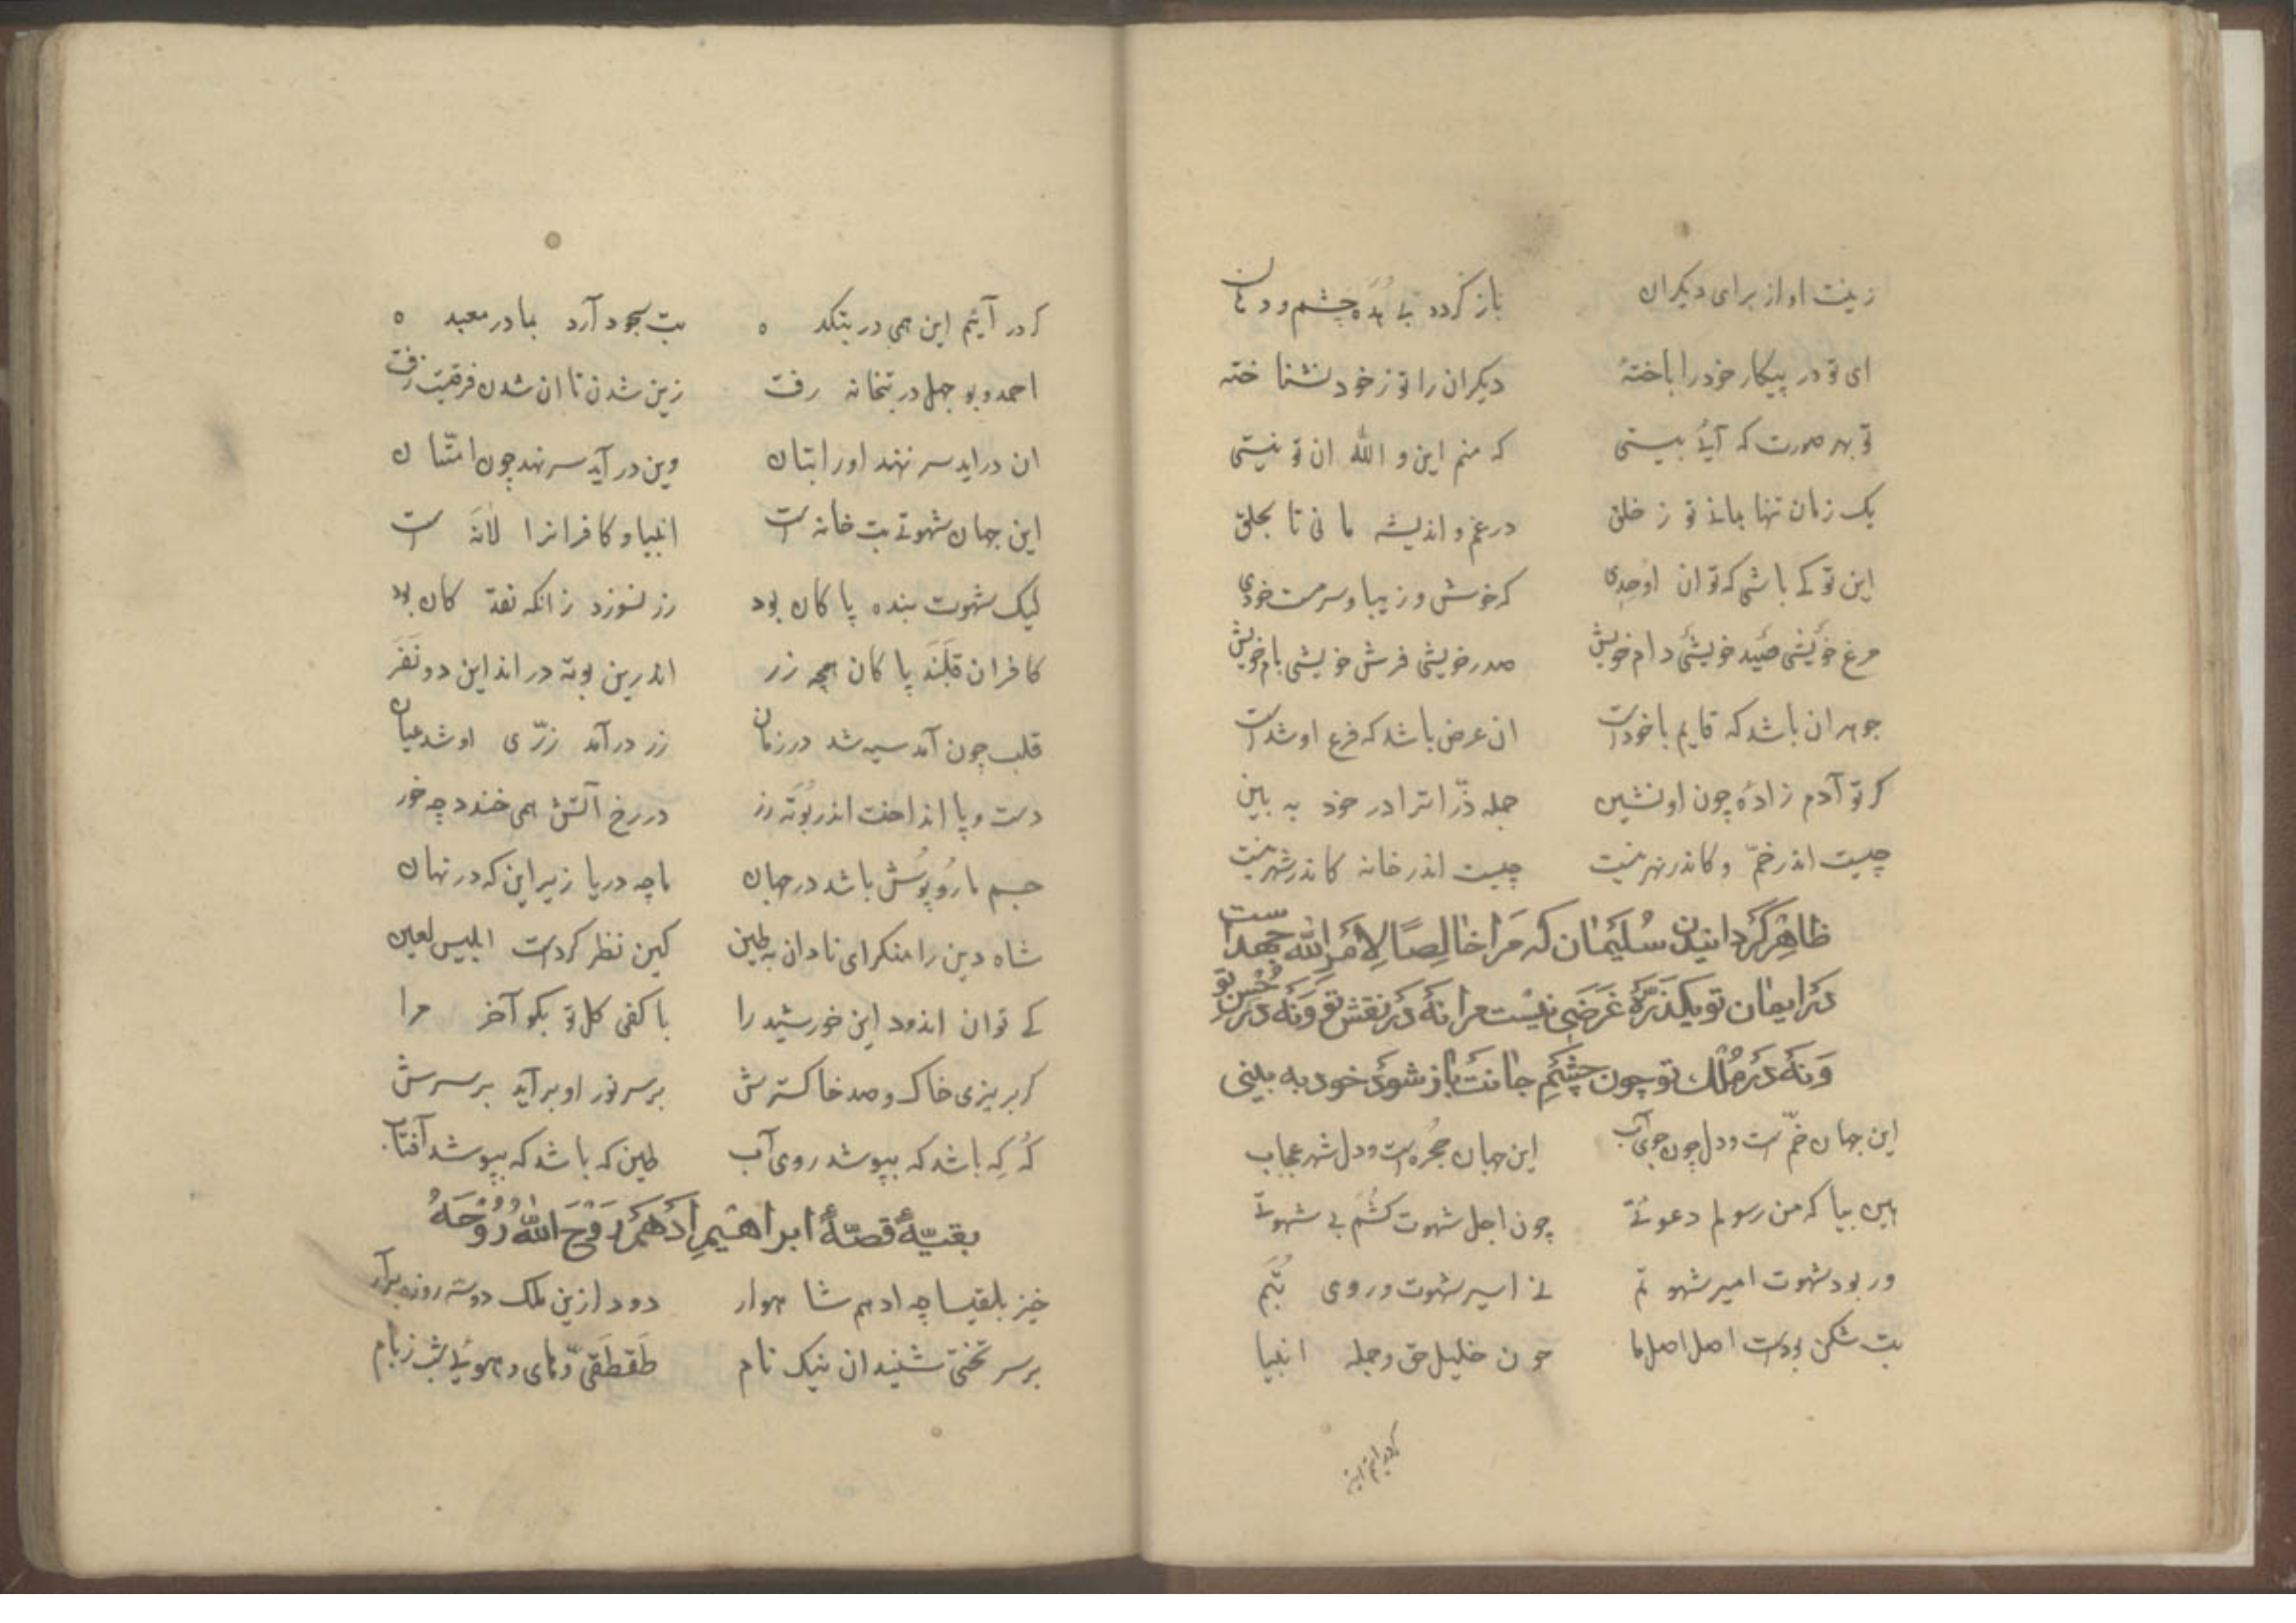 زینت او از برای دیکران باز کردد بی بده چشم و دهان
ای تو در پیکار خود را باختهٔ دیکران را تو ز خود نشناخته
تو بهر صورت که آیی بیستی که منم این و الله ان تو نیستی
یک زمان تنها بمانی تو ز خلق در غم و اندیشه مانی تا بحلق
این تو کی باشی که تو ان اوحدی که خوش و زیبا و سرمست خودی
مرغ خویشی صید خویشی دام خویش صدر خویشی فرش خویشی بام خویش
جوهر ان باشد که قایم با خودست ان عرض باشد که فرع او شدست
کر تو آدم زادهٔ چون او نشین جمله ذرّاترا در خود به بین
چیست اندر خمّ و کاندر نهر نیست چیست اندر خانه کاندر شهر نیست
ظاهر کردانیدن سلیمان که مرا خالصا لامر الله جهدست
در ایمان تو یکذرّهٔ غرضی نیست مرا نه در نفش تو و نه در حسن تو
و نه در ملک تو چون چشم جانت باز شود خود به بینی
این جهان خمّست و دل چون جوی آب این جهان حجره است و دل شهر عجاب
هین بیا که من رسولم دعوتی چون اجل شهوت کشم بی شهوتی
ور بود شهوت امیر شهوتم نی اسیر شهوت و روی بتم
بت شکن بودست اصل اصل ما چون خلیل حق و جمله انبیا
کر در آییم این
کر در آییم این همی در بتکده بت سجود آرد بما در معبده
احمد و بو جهل در بتخانه رفت زین شدن تا ان شدن فرقیست زفت
ان در اید سر نهند او را بتان وین در آید سر نهد چون امتّان
این جهان شهوتی بت خانه است انبیا و کافرانرا لانه است
لیک شهوت بنده پاکان بود زر نسوزد زانکه نقد کان بود
کافران قلبند پاکان همچو زر اندرین بوته در اند این دو نفر
قلب چون آمد سیه شد در زمان زر در آمد زرّی او شد عیان
دست و پا انداخت اندر بوته زر در رخ آتش همی خندد چه خور
جسم ما روپوش باشد در جهان ما چه دریا زیر این که در نهان
شاه دین را منکر ای نادان به طین کین نظر کردست ابلیس لعین
کی توان اندود این خورشید را با کفی کل تو بکو آخر مرا
کر بریزی خاک و صد خاکسترش بر سر نور او بر آید بر سرش
که که باشد که بپوشد روی آب طین که باشد که بپوشد آفتاب
بقیّهٔ قصّهٔ ابراهیم ادهم روّح الله روحه
خیز بلقیسا چه ادهم شاهوار دود ازین ملک دو سه روزه برآر
بر سر تختی شنید ان نیک نام طقطقی و های و هویی شب ز بام